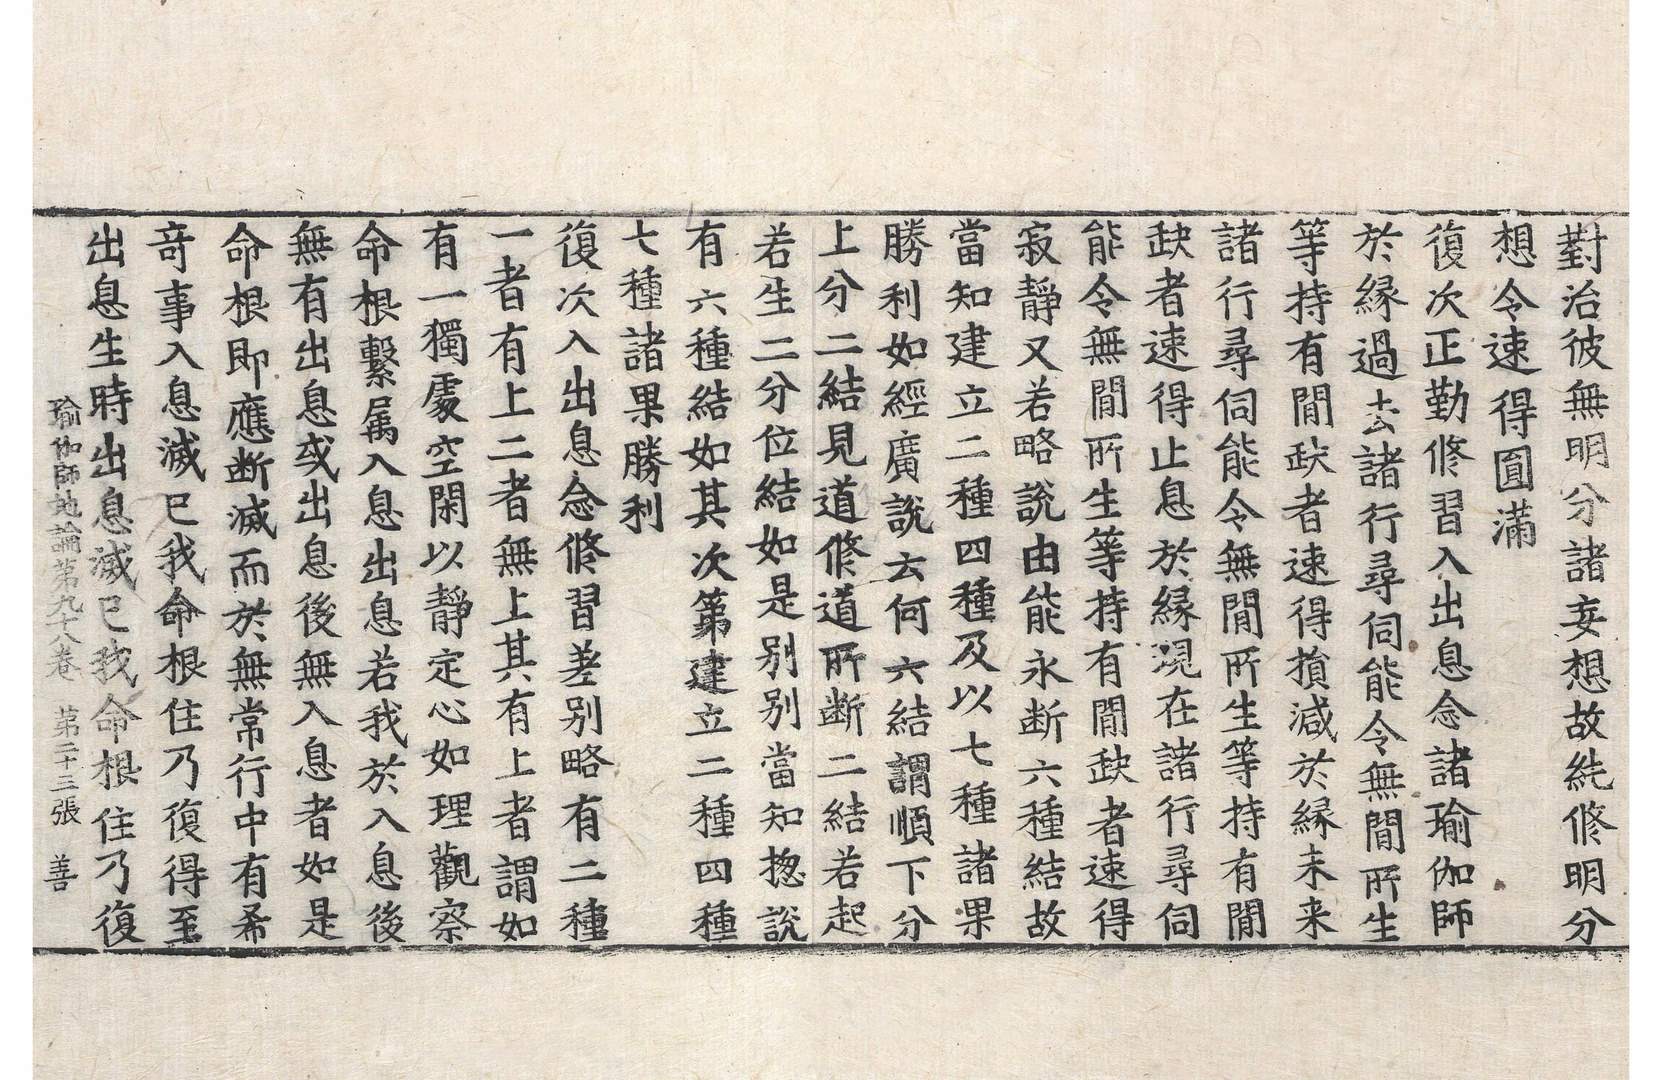 對治彼無明分諸妄想故純修明分
想令速得圓滿
復次正勤修習入出息念諸瑜伽師
於緣過去諸行尋伺能令無閒所生
等持有閒缺者速得損減於緣未来
諸行尋伺能令無閒所生等持有閒
缺者速得止息於緣現在諸行尋伺
能令無閒所生等持有閒缺者速得
寂靜又若略說由能永断六種結故
當知建立二種四種及以七種諸果
勝利如經廣說云何六結謂順下分
上分二結見道修道所断二結若起
若生二分位結如是別別當知揔說
有六種結如其次第建立二種四種
七種諸果勝利
復次入出息念修習差別略有二種
一者有上二者無上其有上者謂如
有一獨處空閑以靜定心如理觀察
命根繫属入息出息若我於入息後
無有出息或出息後無入息者如是
命根即應断滅而於無常行中有希
奇事入息滅已我命根住乃復得至
出息生時出息滅已我命根住乃復
瑜伽師地論第九十八卷　第二十三張　善